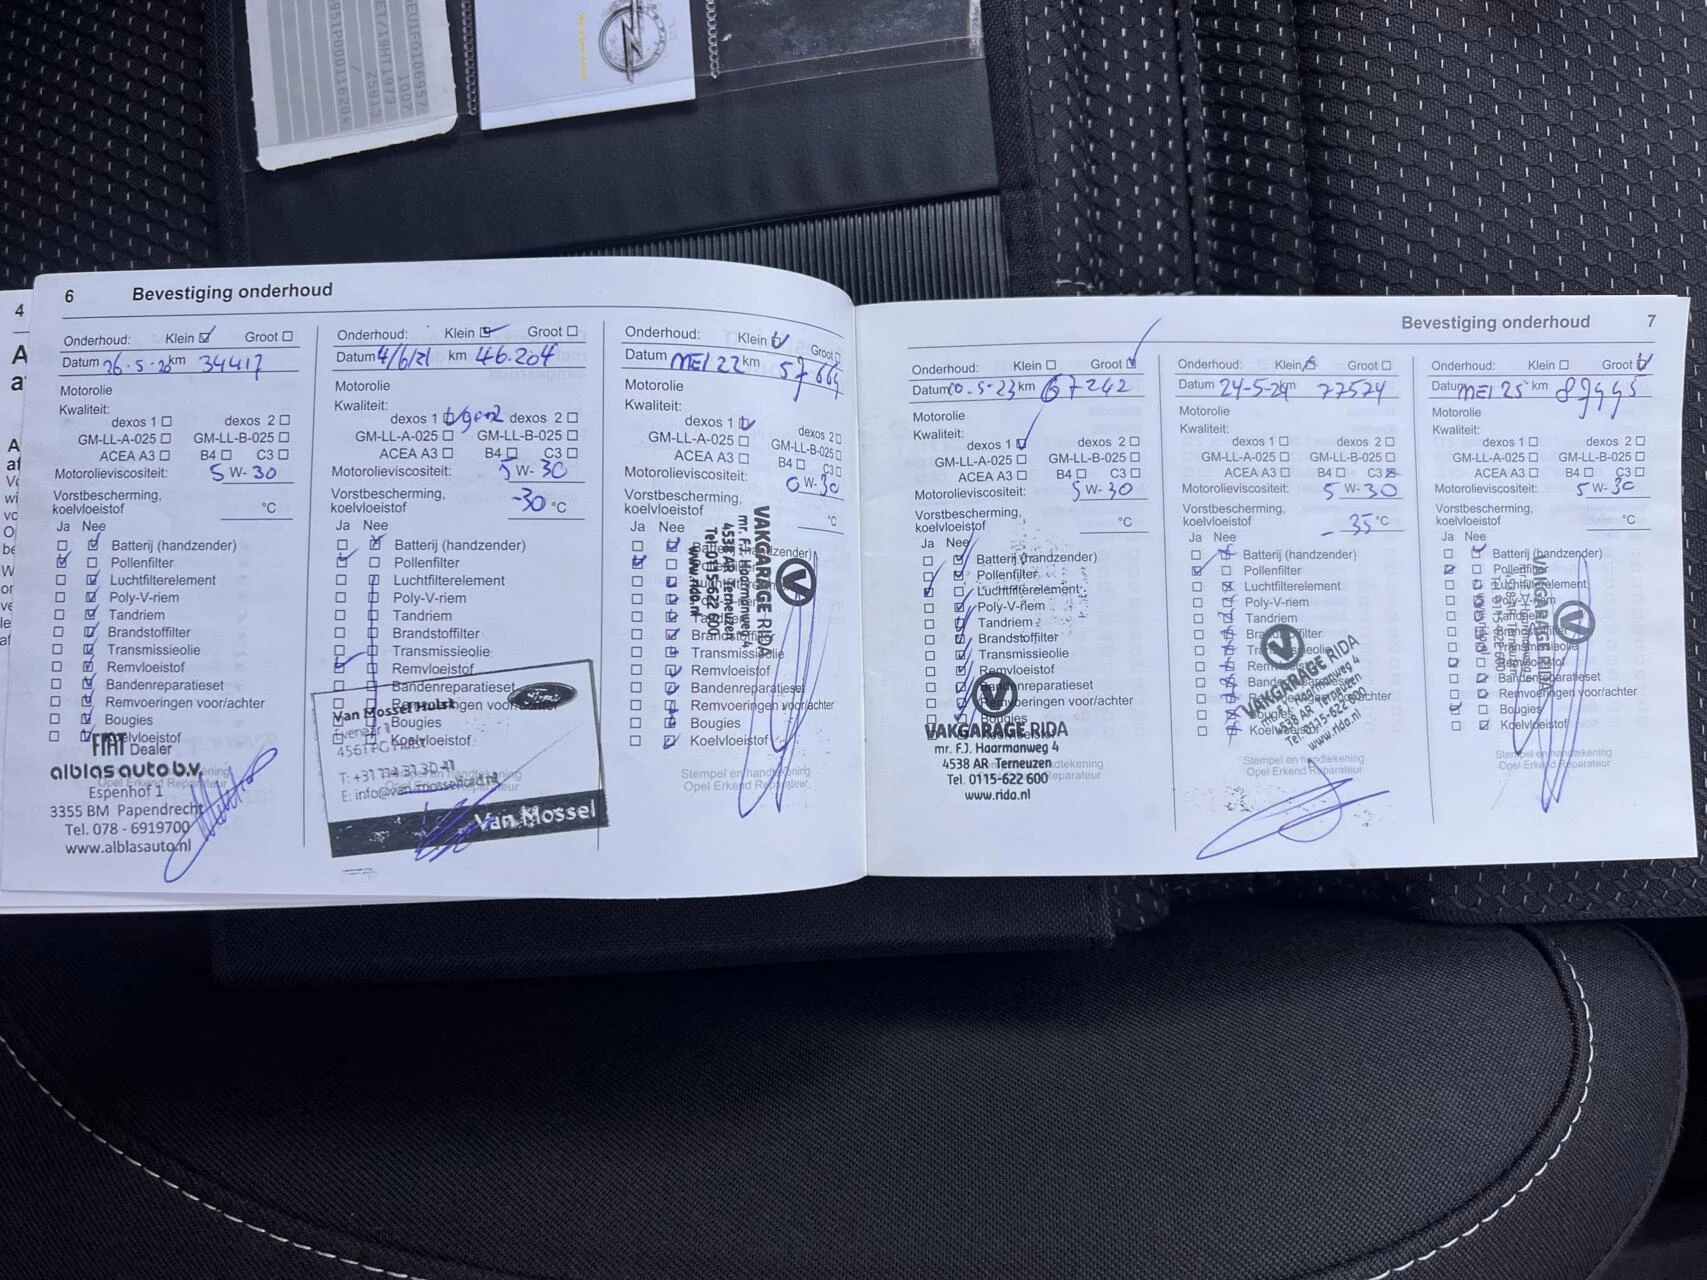 6 Bevestiging onderhoud
Onderhoud: Klein Groot
Datum 26-5-20 km 34417
Motorolie
Kwaliteit:
dexos 1 dexos 2
GM-LL-A-025 GM-LL-B-025
ACEA A3 B4 C3
Motorolieviscositeit: 5 W-30
Vorstbescherming,
koelvloeistof °C
Ja Nee
Batterij (handzender)
Pollenfilter
Luchtfilterelement
Poly-V-riem
Tandriem
Brandstoffilter
Transmissieolie
Remvloeistof
Bandenreparatieset
Remvoeringen voor/achter
Bougies
Koelvloeistof
FIAT Dealer
alblas auto b.v.
Espenhof 1
3355 BM Papendrecht
Tel. 078 - 6919700
www.alblasauto.nl
Onderhoud: Klein Groot
Datum 4/6/21 km 46.204
Motorolie
Kwaliteit:
dexos 1 gen2 dexos 2
GM-LL-A-025 GM-LL-B-025
ACEA A3 B4 C3
Motorolieviscositeit: 5 W-30
Vorstbescherming,
koelvloeistof -30 °C
Ja Nee
Batterij (handzender)
Pollenfilter
Luchtfilterelement
Poly-V-riem
Tandriem
Brandstoffilter
Transmissieolie
Remvloeistof
Bandenreparatieset
Remvoeringen voor/achter
Bougies
Koelvloeistof
Ford
Van Mossel Hulst
Van Mossel
Onderhoud: Klein Groot
Datum MEI 22 km 57664
Motorolie
Kwaliteit:
dexos 1 dexos 2
GM-LL-A-025 GM-LL-B-025
ACEA A3 B4 C3
Motorolieviscositeit: 0 W-30
Vorstbescherming,
koelvloeistof °C
Ja Nee
Batterij (handzender)
Pollenfilter
Luchtfilterelement
Poly-V-riem
Tandriem
Brandstoffilter
Transmissieolie
Remvloeistof
Bandenreparatieset
Remvoeringen voor/achter
Bougies
Koelvloeistof
Stempel en handtekening
Opel Erkend Reparateur
VAKGARAGE RIDA
mr. F.J. Haarmanweg 4
4538 AR Terneuzen
Tel. 0115-622 600
www.rida.nl
Bevestiging onderhoud 7
Onderhoud: Klein Groot
Datum 10-5-23 km 67242
Motorolie
Kwaliteit:
dexos 1 dexos 2
GM-LL-A-025 GM-LL-B-025
ACEA A3 B4 C3
Motorolieviscositeit: 5 W-30
Vorstbescherming,
koelvloeistof °C
Ja Nee
Batterij (handzender)
Pollenfilter
Luchtfilterelement
Poly-V-riem
Tandriem
Brandstoffilter
Transmissieolie
Remvloeistof
Bandenreparatieset
Bougies
VAKGARAGE RIDA
mr. F.J. Haarmanweg 4
4538 AR Terneuzen
Tel. 0115-622 600
www.rida.nl
Onderhoud: Klein Groot
Datum 24-5-24 km 77574
Motorolie
Kwaliteit:
dexos 1 dexos 2
GM-LL-A-025 GM-LL-B-025
ACEA A3 B4 C3
Motorolieviscositeit: 5 W-30
Vorstbescherming,
koelvloeistof -35 °C
Ja Nee
Batterij (handzender)
Pollenfilter
Luchtfilterelement
Poly-V-riem
Tandriem
Brandstoffilter
Transmissieolie
Remvloeistof
Bandenreparatieset
Bougies
Koelvloeistof
VAKGARAGE RIDA
mr. F.J. Haarmanweg 4
4538 AR Terneuzen
Tel. 0115-622 600
www.rida.nl
Stempel en handtekening
Opel Erkend Reparateur
Onderhoud: Klein Groot
Datum MEI 25 km 87445
Motorolie
Kwaliteit:
dexos 1 dexos 2
GM-LL-A-025 GM-LL-B-025
ACEA A3 B4 C3
Motorolieviscositeit: 5 W-30
Vorstbescherming,
koelvloeistof °C
Ja Nee
Batterij (handzender)
Pollenfilter
Luchtfilterelement
Poly-V-riem
Tandriem
Brandstoffilter
Transmissieolie
Remvloeistof
Bandenreparatieset
Remvoeringen voor/achter
Bougies
Koelvloeistof
VAKGARAGE RIDA
Stempel en handtekening
Opel Erkend Reparateur